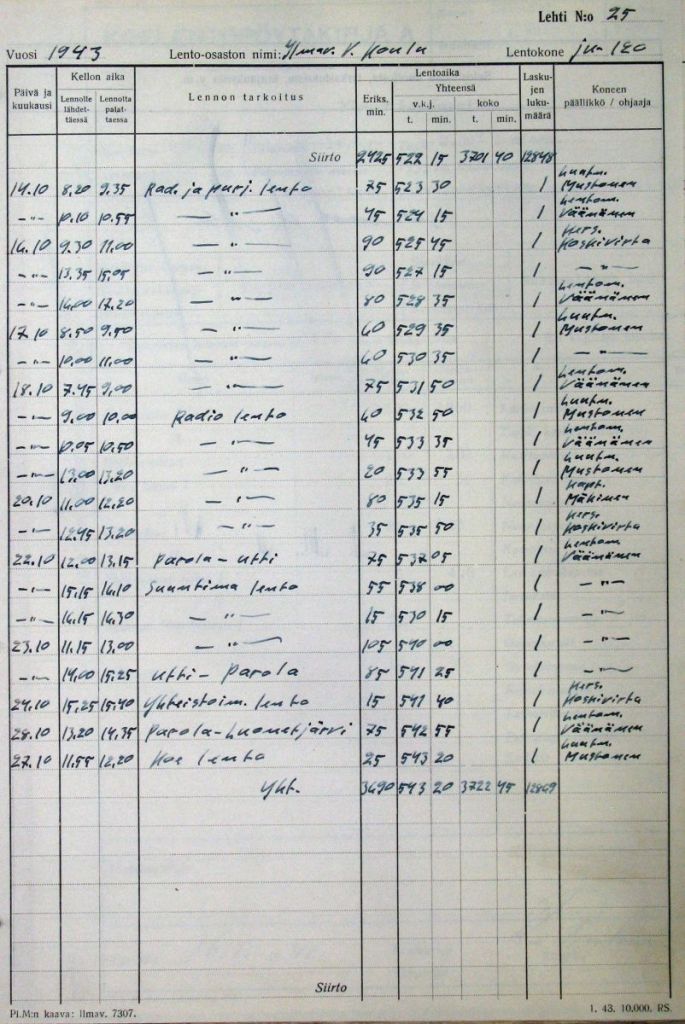 Lehti N:o 25
Vuosi 1943 Lento-osaston nimi: Ilmav. V. Koulu Lentokone ju-120
Päivä ja kuukausi Kellon aika Lennon tarkoitus Lentoaika Laskujen lukumäärä Koneen päällikkö / ohjaaja
Lennolle lähdettäessä Lennolta palattaessa Eriks. min. Yhteensä
v.k.j. koko
t. min. t. min.
Siirto 2425 522 15 3701 40 12848
14.10 8.20 9.35 Rad. ja purj. lento 75 523 30 1 Luutn. Mustonen
—"— 10.10 10.55 —"— 45 524 15 1 Lentom. Väänänen
16.10 9.30 11.00 —"— 90 525 45 1 Kers. Koskivirta
—"— 13.35 15.05 —"— 90 527 15 1 —"—
—"— 16.00 17.20 —"— 80 528 35 1 Lentom. Väänänen
17.10 8.50 9.50 —"— 60 529 35 1 Luutn. Mustonen
—"— 10.00 11.00 —"— 60 530 35 1 —"—
18.10 7.45 9.00 —"— 75 531 50 1 Lentom. Väänänen
—"— 9.00 10.00 Radio lento 60 532 50 1 Luutn. Mustonen
—"— 10.05 10.50 —"— 45 533 35 1 Lentom. Väänänen
—"— 13.00 13.20 —"— 20 533 55 1 Luutn. Mustonen
20.10 11.00 12.20 —"— 80 535 15 1 Kapt. Mäkinen
—"— 12.45 13.20 —"— 35 535 50 1 Kers. Koskivirta
22.10 12.00 13.15 Parola - Utti 75 537 05 1 Lentom. Väänänen
—"— 15.15 16.10 Suuntima lento 55 538 00 1 —"—
—"— 16.15 16.30 —"— 15 530 15 1 —"—
23.10 11.15 13.00 —"— 105 540 00 1 —"—
—"— 14.00 15.25 Utti - Parola 85 541 25 1 —"—
24.10 15.25 15.40 Yhteistoim. lento 15 541 40 1 Kers. Koskivirta
28.10 13.20 14.35 Parola-Luonetjärvi 75 542 55 1 Lentom. Väänänen
27.10 11.55 12.20 Koe lento 25 543 20 1 Luutn. Mustonen
Yht. 3690 543 20 3722 45 12869
Siirto
Pl.M:n kaava: Ilmav. 7307. 1. 43. 10.000. RS.